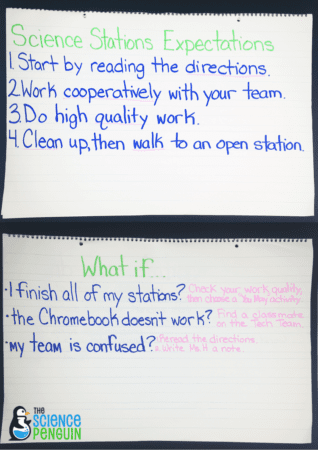 Science Stations Expectations
1. Start by reading the directions.
2. Work cooperatively with your team.
3. Do high quality work.
4. Clean up, then walk to an open station.
What if...
• I finish all of my stations? Check your work quality,
then choose a You May activity.
• the Chromebook doesn't work? Find a classmate
on the Tech Team.
• my team is confused? Reread the directions.
write Ms. H a note.
THE
SCIENCE
PENGUIN